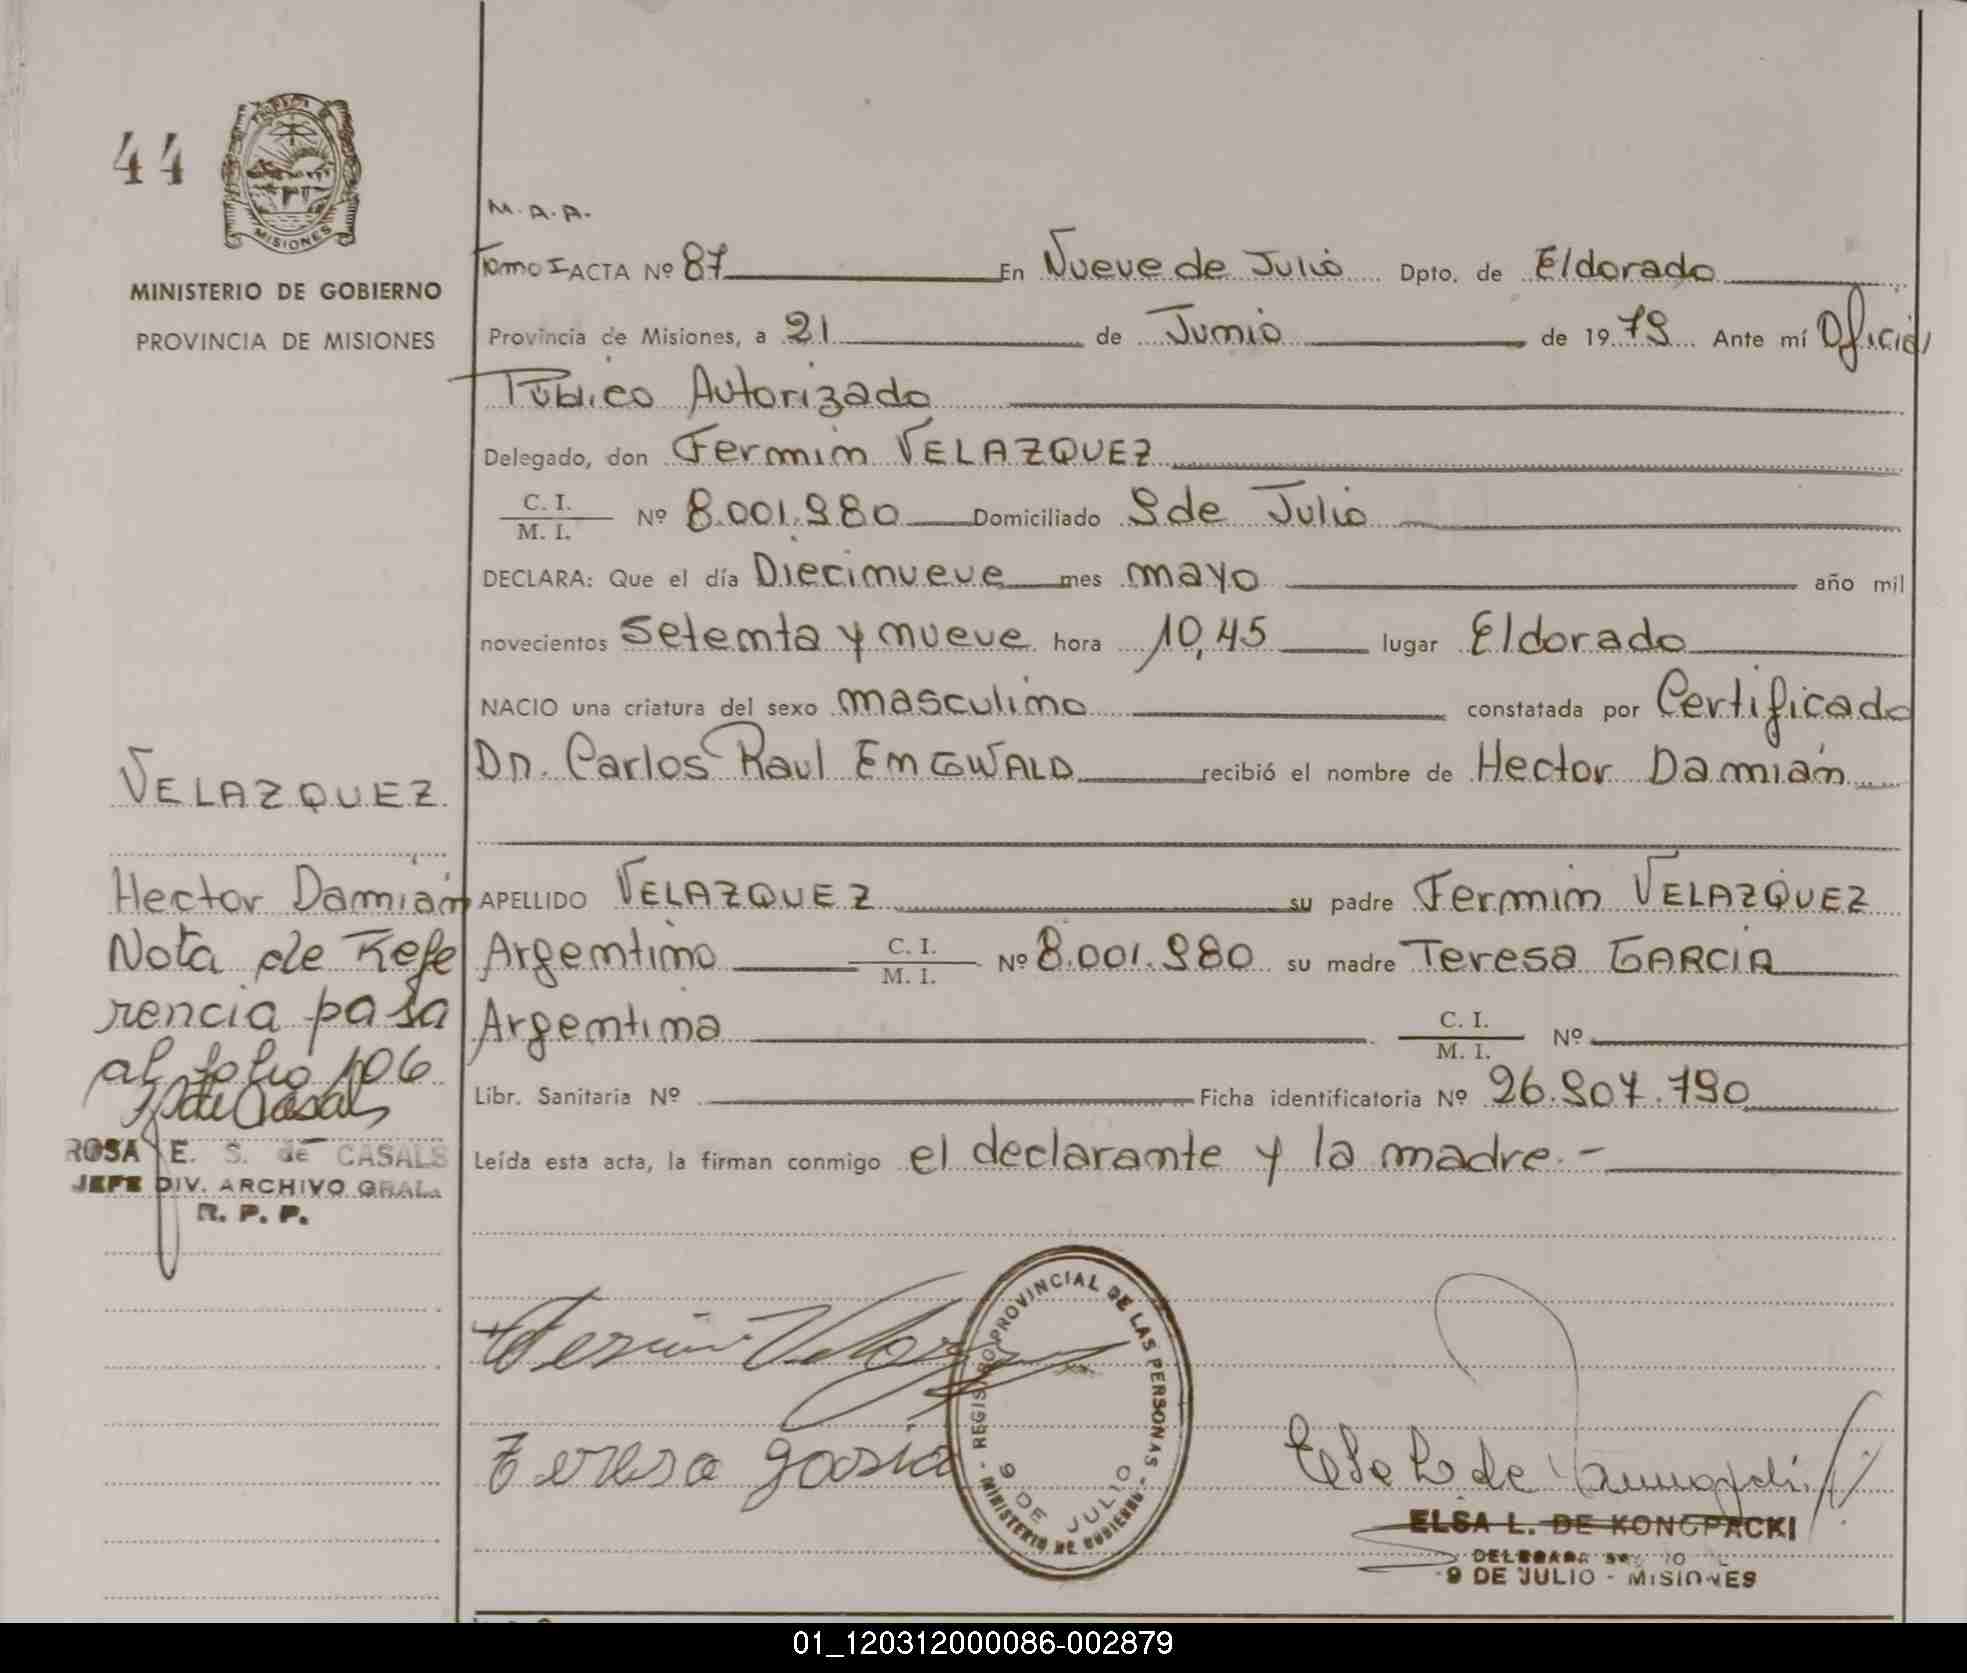 44
MISIONES
MINISTERIO DE GOBIERNO
PROVINCIA DE MISIONES
M.A.A.
Tomo I ACTA Nº 87 En Nueve de Julio Dpto. de Eldorado
Provincia de Misiones, a 21 de Junio de 1979 Ante mí Oficial
Público Autorizado
Delegado, don Fermin VELAZQUEZ
C. I.
M. I. Nº 8.001.980 Domiciliado 9 de Julio
DECLARA: Que el día Diecinueve mes mayo año mil
novecientos setenta y nueve hora 10,45 lugar Eldorado
NACIO una criatura del sexo masculino constatada por Certificado
Dn. Carlos Raul ENGWALD recibió el nombre de Hector Damián
APELLIDO VELAZQUEZ su padre Fermin VELAZQUEZ
Argentino C. I.
M. I. Nº 8.001.980 su madre Teresa GARCIA
Argentina C. I.
M. I. Nº
Libr. Sanitaria Nº Ficha identificatoria Nº 26.907.790
Leída esta acta, la firman conmigo el declarante y la madre.-
VELAZQUEZ
Hector Damián
Nota de Refe
rencia pasa
al folio 106
ROSA E. S. de CASALS
JEFE DIV. ARCHIVO GRAL.
R. P. P.
Fermin Velazquez
Teresa Garcia
REGISTRO PROVINCIAL DE LAS PERSONAS - MINISTERIO DE GOBIERNO -
9 DE JULIO
ELSA L. DE KONOPACKI
DELEGADA
9 DE JULIO - MISIONES
01_120312000086-002879